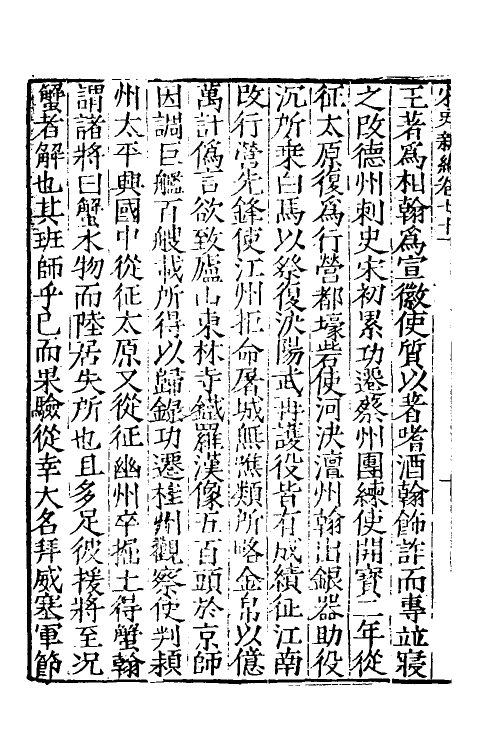 宋史新編卷七十一
王著爲相翰爲宣徽使質以著嗜酒翰飾詐而專並寢
之改德州刺史宋初累功遷蔡州團練使開寶二年從
征太原復爲行營都壕砦使河決澶州翰出銀器助役
沉所乗白馬以祭復決陽武再護役皆有成績征江南
改行營先鋒使江州拒命屠城無譙類所略金帛以億
萬計僞言欲致廬山東林寺鐵羅漢像五百頭於京師
因調巨艦百艘載所得以歸錄功遷桂州觀察使判潁
州太平興國中從征太原又從征幽州卒掘土得蟹翰
謂諸將曰蟹水物而陸居失所也且多足彼援將至况
蟹者解也其班師乎已而果驗從幸大名拜威塞軍節